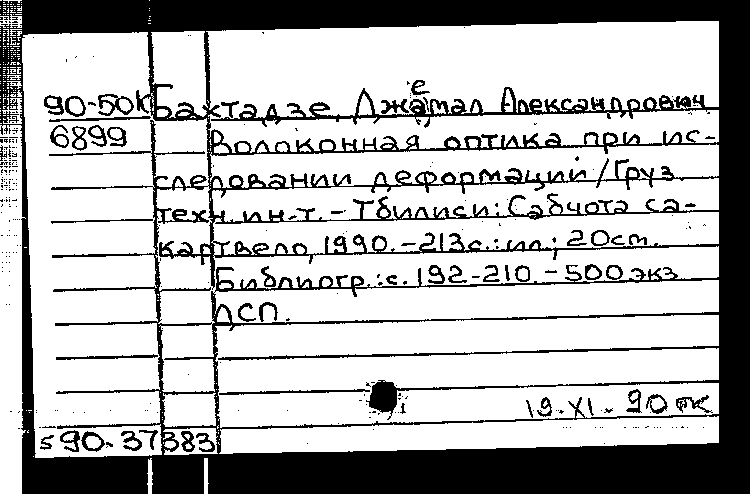 90-50К Бахтадзе, Джемал Александрович
6899 Волоконная оптика при ис-
следовании деформаций / Груз.
техн. ин-т. - Тбилиси: Сабчота са-
картвело, 1990. - 213с.: ил.; 20см.
Библиогр.: с. 192-210. - 500 экз
ДСП.
19-XI-90
590-37383